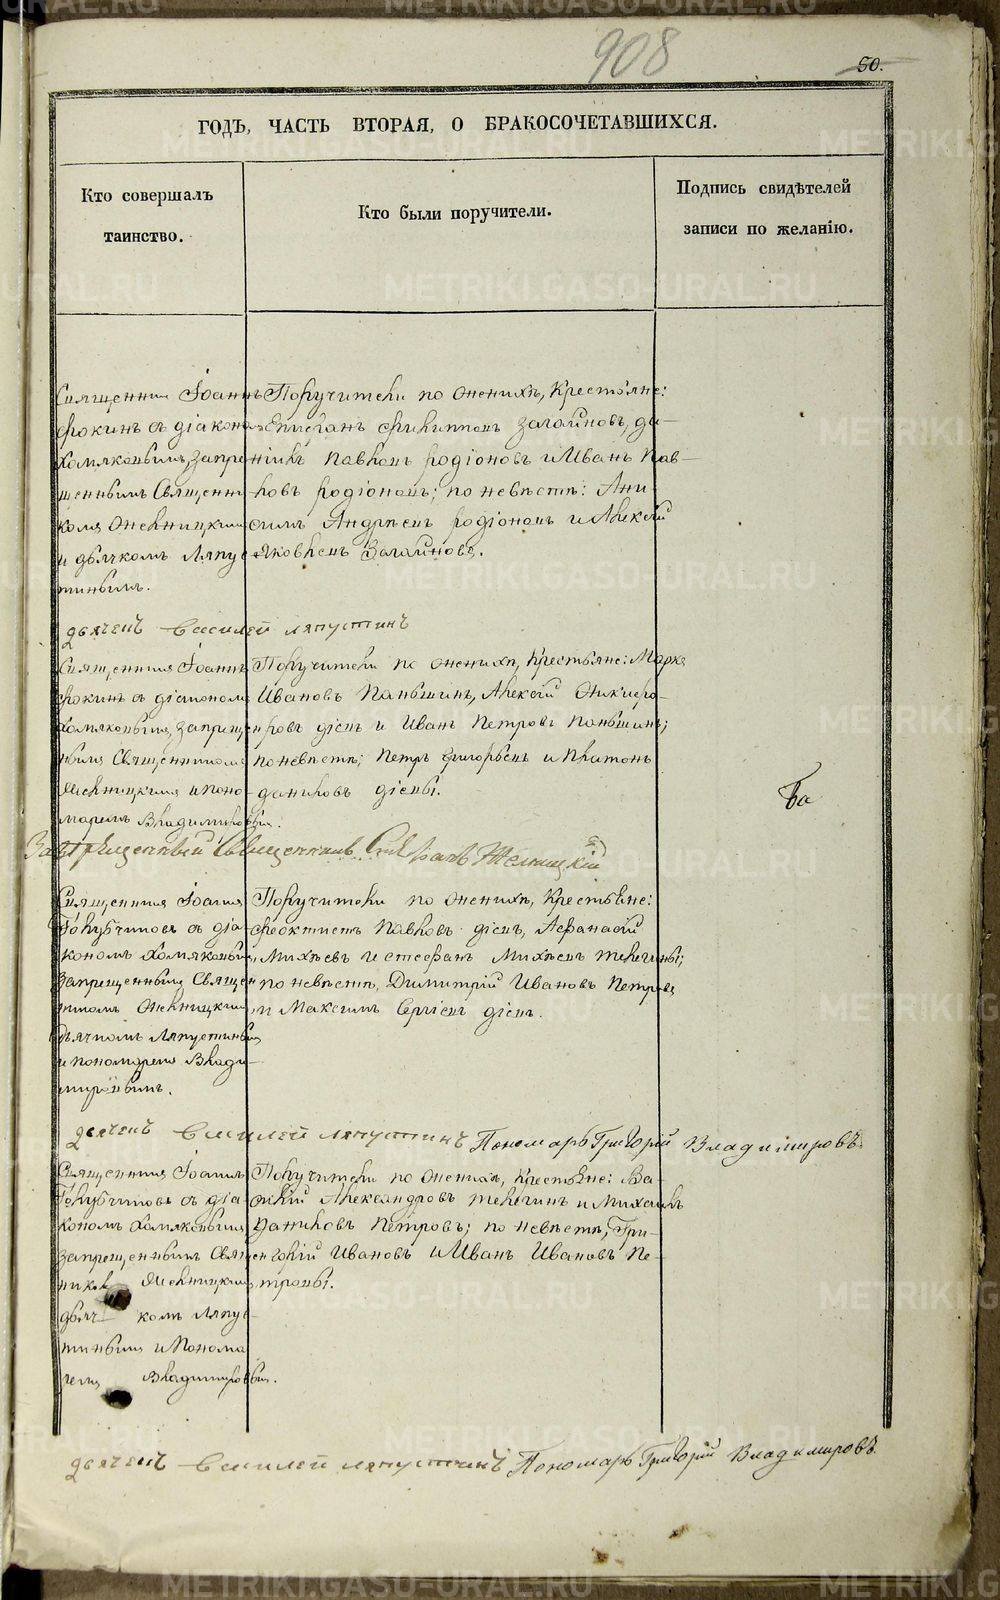 908
50.
ГОДЪ, ЧАСТЬ ВТОРАЯ, О БРАКОСОЧЕТАВШИХСЯ.
Кто совершалъ
таинство.
Кто были поручители.
Подпись свидѣтелей
записи по желанію.
Священник Іоаннъ
Фокинъ съ діакона
Хомяковымъ, запре
щеннымъ Священни
комъ
и дьячкомъ Ляпус
тинымъ.
Поручители по женихѣ, Крестьяне:
Епифанъ Филиппов Загайновъ, Да-
ніилъ Павлов Родіоновъ и Иванъ Пав-
ловъ Родіонов; по невѣстѣ: Ани-
симъ Андрѣев Родіонов и Алексѣй
Яковлев Загайновъ.
дьячекъ Василей Ляпустинъ
Священник Іоаннъ
Фокинъ съ діакономъ
Хомяковымъ, запрещен
нымъ Священникомъ
и поно-
маремъ Владиміровымъ.
Поручители по женихѣ, Крестьяне: Марко
Ивановъ Паньшинъ, Алексѣй Никифо-
ровъ діевъ и Иванъ Петровъ Паньшинъ;
по невѣстѣ; Петръ Григорьев и Платонъ
Даниловъ діевы.
Запрещенный Священникъ
Священник Іоаннъ
Голубчиковъ съ діа
кономъ Хомяковым
Запрещеннымъ Священ
никомъ
дьячкомъ Ляпустинымъ
и пономаремъ Влади-
міровымъ.
Поручители по женихѣ, Крестьяне:
Феоктистъ Павловъ діевъ, Афанасій
Михѣевъ и Стефанъ Михѣевъ Телегины;
по невѣстѣ, Димитрій Ивановъ Петровъ
и Максимъ Сергіев діевъ.
дьячекъ Василей Ляпустинъ Пономарь Григорій Владиміровъ.
Священник Іоаннъ
Голубчиковъ съ діа-
кономъ Хомяковымъ
запрещеннымъ Свя
дьяч комъ Ляпус-
тинымъ и Понома
ремъ Владиміровымъ.
Поручители по женихѣ, Крестьяне: Ва-
силій Александровъ Телегинъ и Михаилъ
Даниловъ Петровъ; по невѣстѣ, Гри-
горій Ивановъ и Иванъ Ивановъ Пе-
тровы.
дьячекъ Василей Ляпустинъ Пономарь Григорій Владиміровъ
METRIKI.GASO-URAL.RU